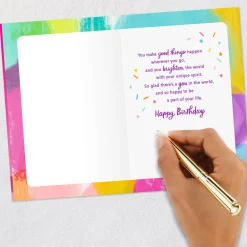 You make good things happen
wherever you go,
and you brighten the world
with your unique spirit.
So glad there's a you in the world,
and so happy to be
a part of your life.
Happy Birthday